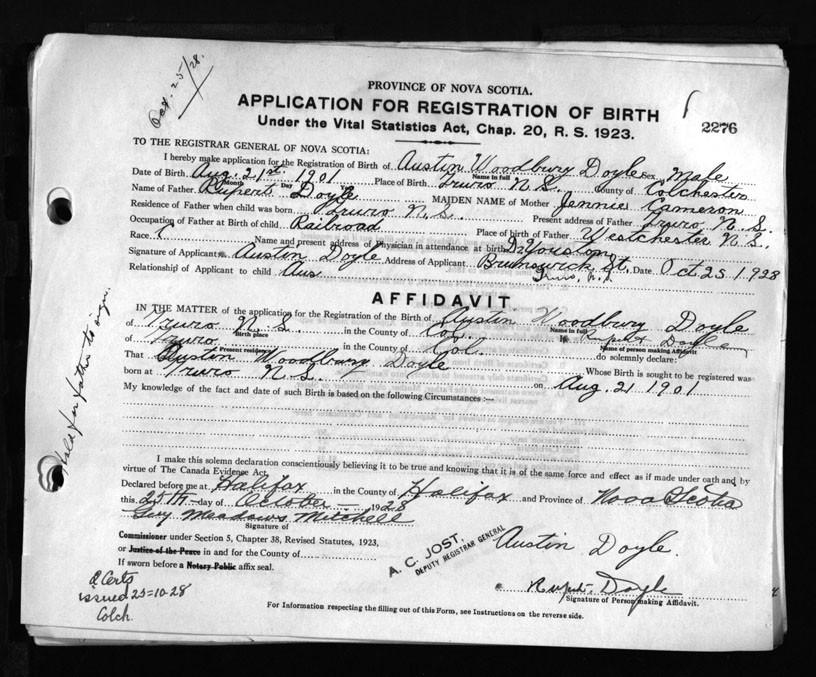 Oct. 25/28.
PROVINCE OF NOVA SCOTIA.
APPLICATION FOR REGISTRATION OF BIRTH
Under the Vital Statistics Act, Chap. 20, R. S. 1923.
2276
TO THE REGISTRAR GENERAL OF NOVA SCOTIA:
I hereby make application for the Registration of Birth of Austin Woodbury Doyle Sex Male
Name in full
Date of Birth Aug. 21st. 1901 Place of Birth Truro N.S. County of Colchester
Month Day Year
Name of Father Rupert Doyle MAIDEN NAME of Mother Jennie Cameron
Residence of Father when child was born Truro N.S. Present address of Father Truro N.S.
Occupation of Father at Birth of child Railroad Place of birth of Father Westchester N.S.
Race C Name and present address of Physician in attendance at birth Dr Youston
Signature of Applicant Austin Doyle Address of Applicant Brunswick St. Date Oct 25 1928
Truro, N.S.
Relationship of Applicant to child
AFFIDAVIT
IN THE MATTER of the application for the Registration of the Birth of Austin Woodbury Doyle
Name in full
of Truro N.S. in the County of Col. I, Rupert Doyle
Birth place Name of person making Affidavit
of Truro in the County of Col. do solemnly declare:
Present residence
That Austin Woodbury Doyle Whose Birth is sought to be registered was
born at Truro N.S. on Aug. 21 1901
My knowledge of the fact and date of such Birth is based on the following Circumstances :—
Held for father to sign.
I make this solemn declaration conscientiously believing it to be true and knowing that it is of the same force and effect as if made under oath and by
virtue of The Canada Evidence Act.
Declared before me at Halifax in the County of Halifax and Province of Nova Scotia
this 25th day of October 1928
Guy Meadows Mitchell
Signature of
Commissioner under Section 5, Chapter 38, Revised Statutes, 1923,
or Justice of the Peace in and for the County of
If sworn before a Notary Public affix seal.
A. C. JOST,
DEPUTY REGISTRAR GENERAL
Austin Doyle.
Rupert Doyle
Signature of Person making Affidavit.
2 Certs
issued 25-10-28
Colch.
For Information respecting the filling out of this Form, see Instructions on the reverse side.